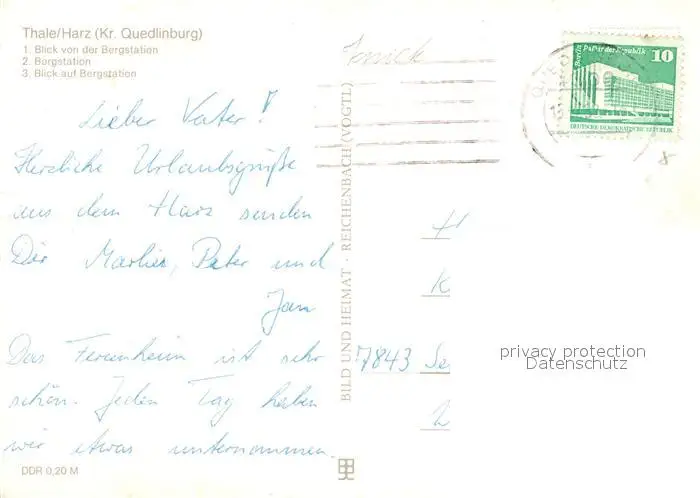 Thale/Harz (Kr. Quedlinburg)
1. Blick von der Bergstation
2. Bergstation
3. Blick auf Bergstation
Lieber Vater!
Herzliche Urlaubsgrüße
aus dem Harz senden
Dir Marlies, Peter und
Jan
Das Ferienheim ist sehr
schön. Jeden Tag haben
wir etwas unternommen.
DDR 0,20 M
BILD UND HEIMAT · REICHENBACH (VOGTL)
Berlin Palast der Republik
10
DEUTSCHE DEMOKRATISCHE REPUBLIK
H
K
7843 Se
privacy protection
Datenschutz